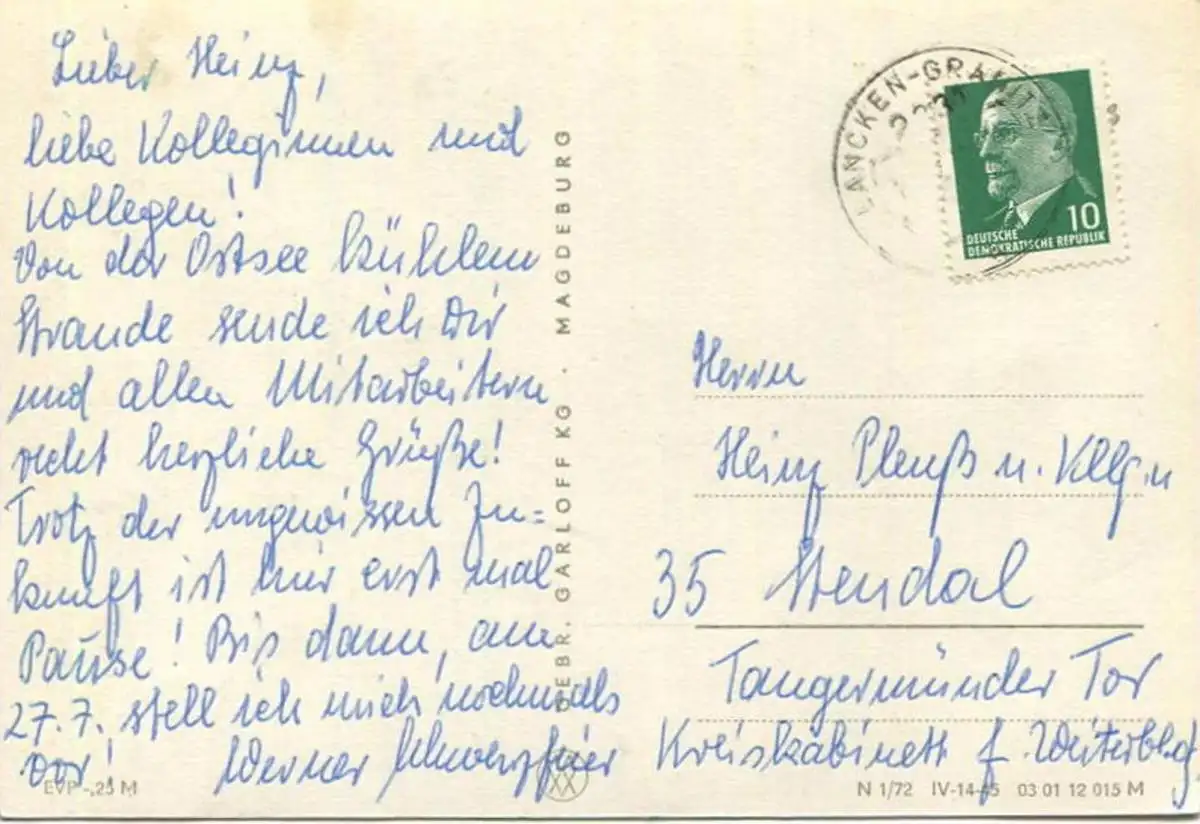 Lieber Heinz,
liebe Kolleginnen und
Kollegen!
Von der Ostsee kühlem
Strande sende ich Dir
und allen Mitarbeitern
recht herzliche Grüße!
Trotz der ungewissen Zu=
kunft ist hier erst mal
Pause! Bis dann, am
27.7. stell ich mich nochmals
vor! Werner
EVP -,25 M
GEBR. GARLOFF KG · MAGDEBURG
LANCKEN-GRANITZ
10
DEUTSCHE
DEMOKRATISCHE REPUBLIK
Herrn
Heinz Pleuß u. Kllg.n
35 Stendal
Tangermünder Tor
Kreiskabinett f. Weiterbldg.
N 1/72 IV-14-45 03 01 12 015 M